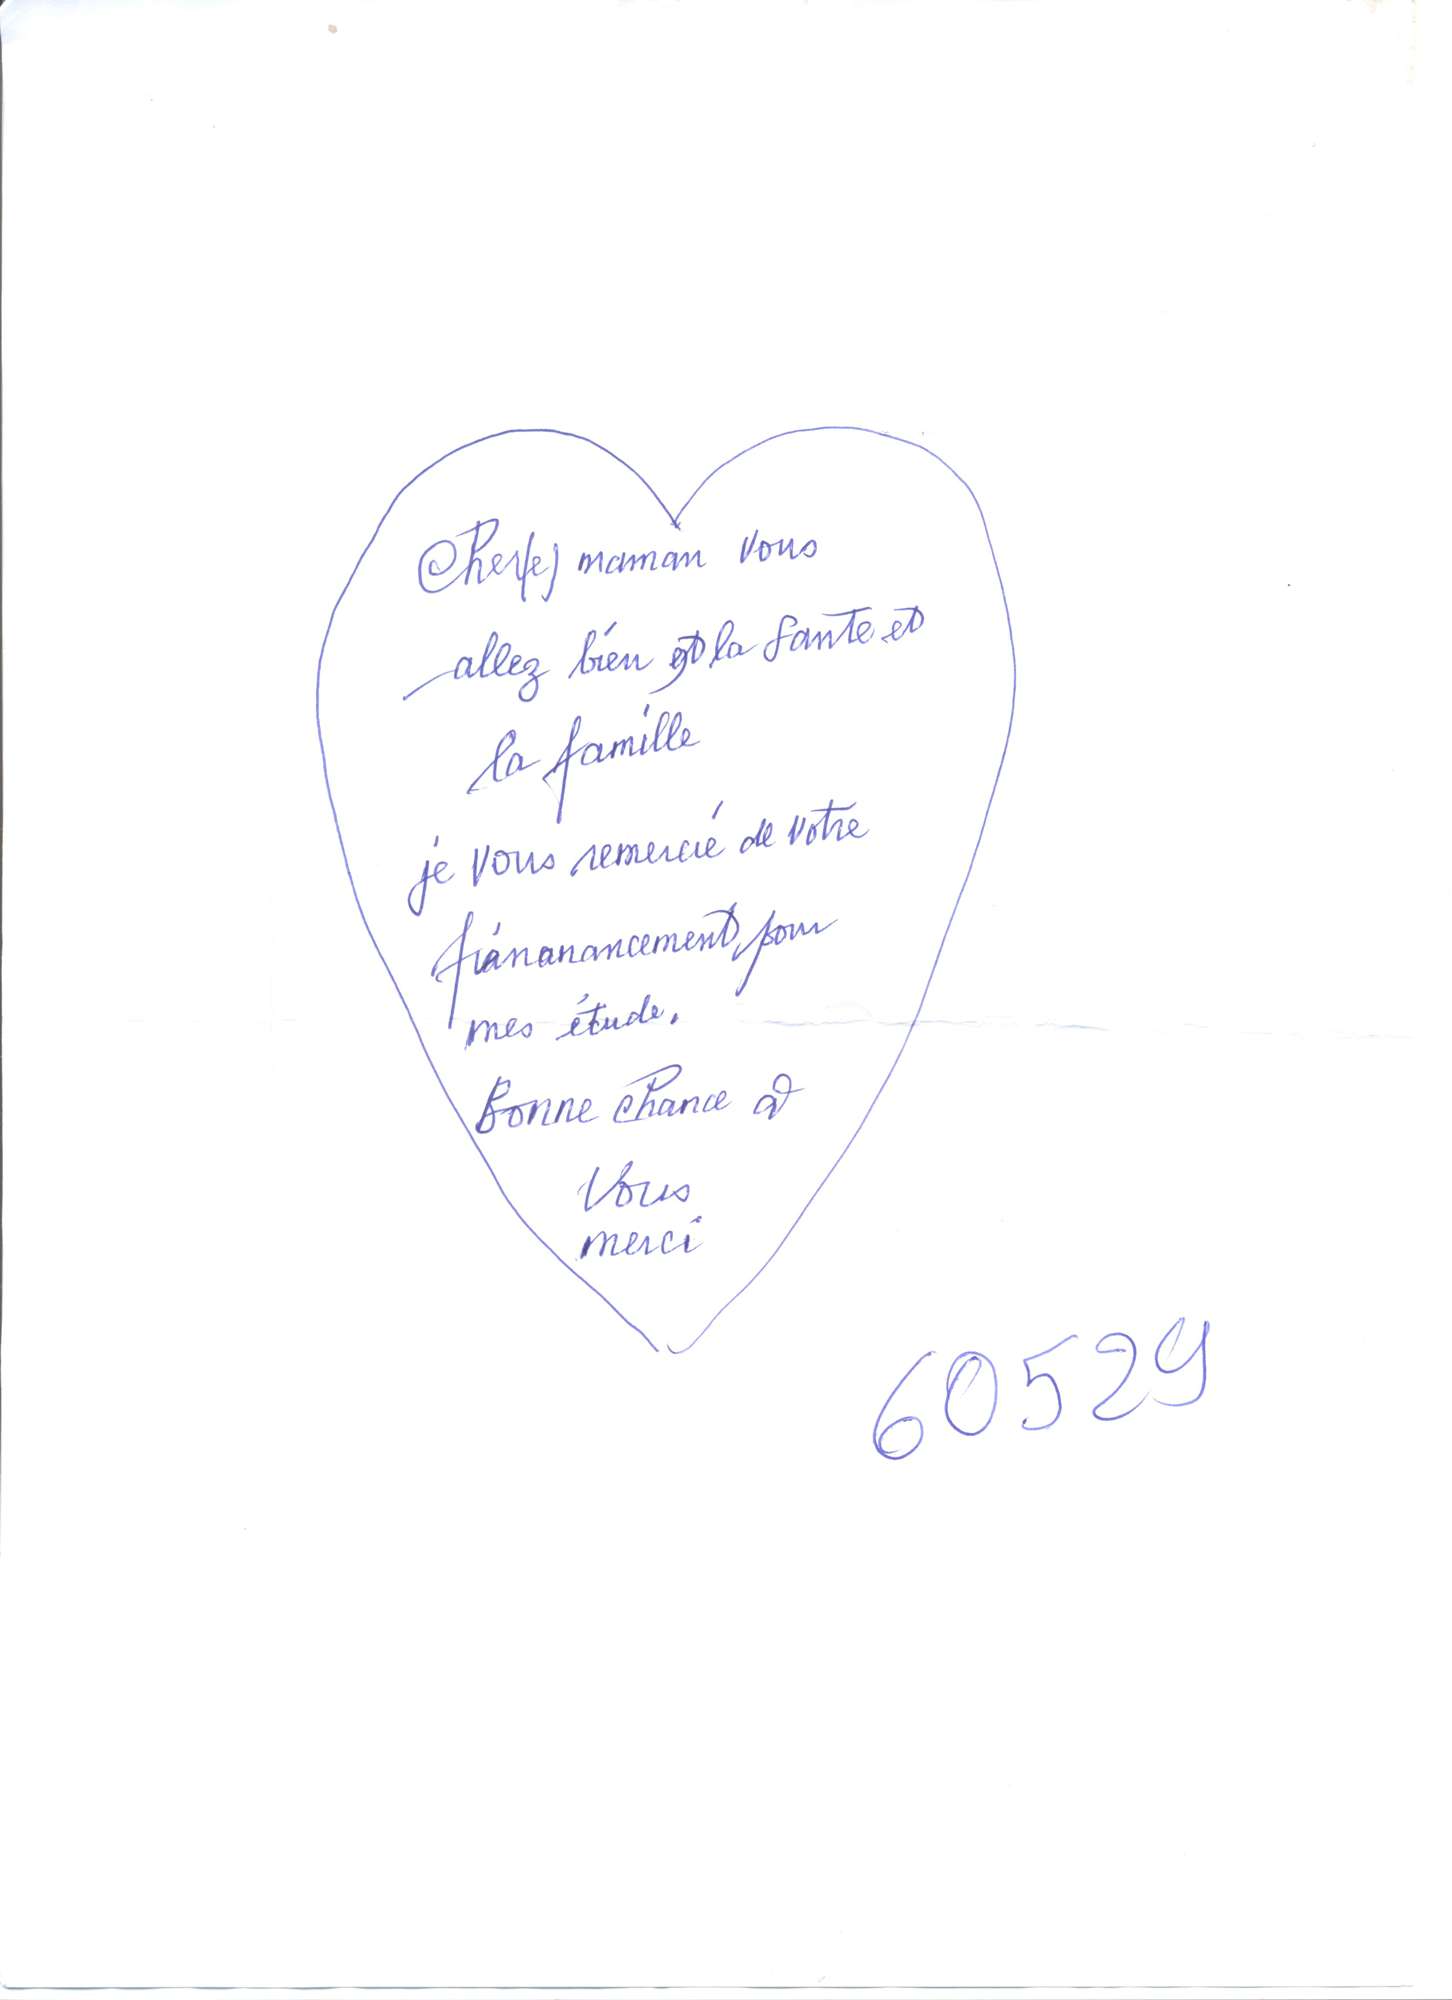 Cher(e) maman vous
allez bien et la sante et
la famille
je vous remercié de votre
fiánanancement pour
mes étude.
Bonne chance a
vous
merci
60529